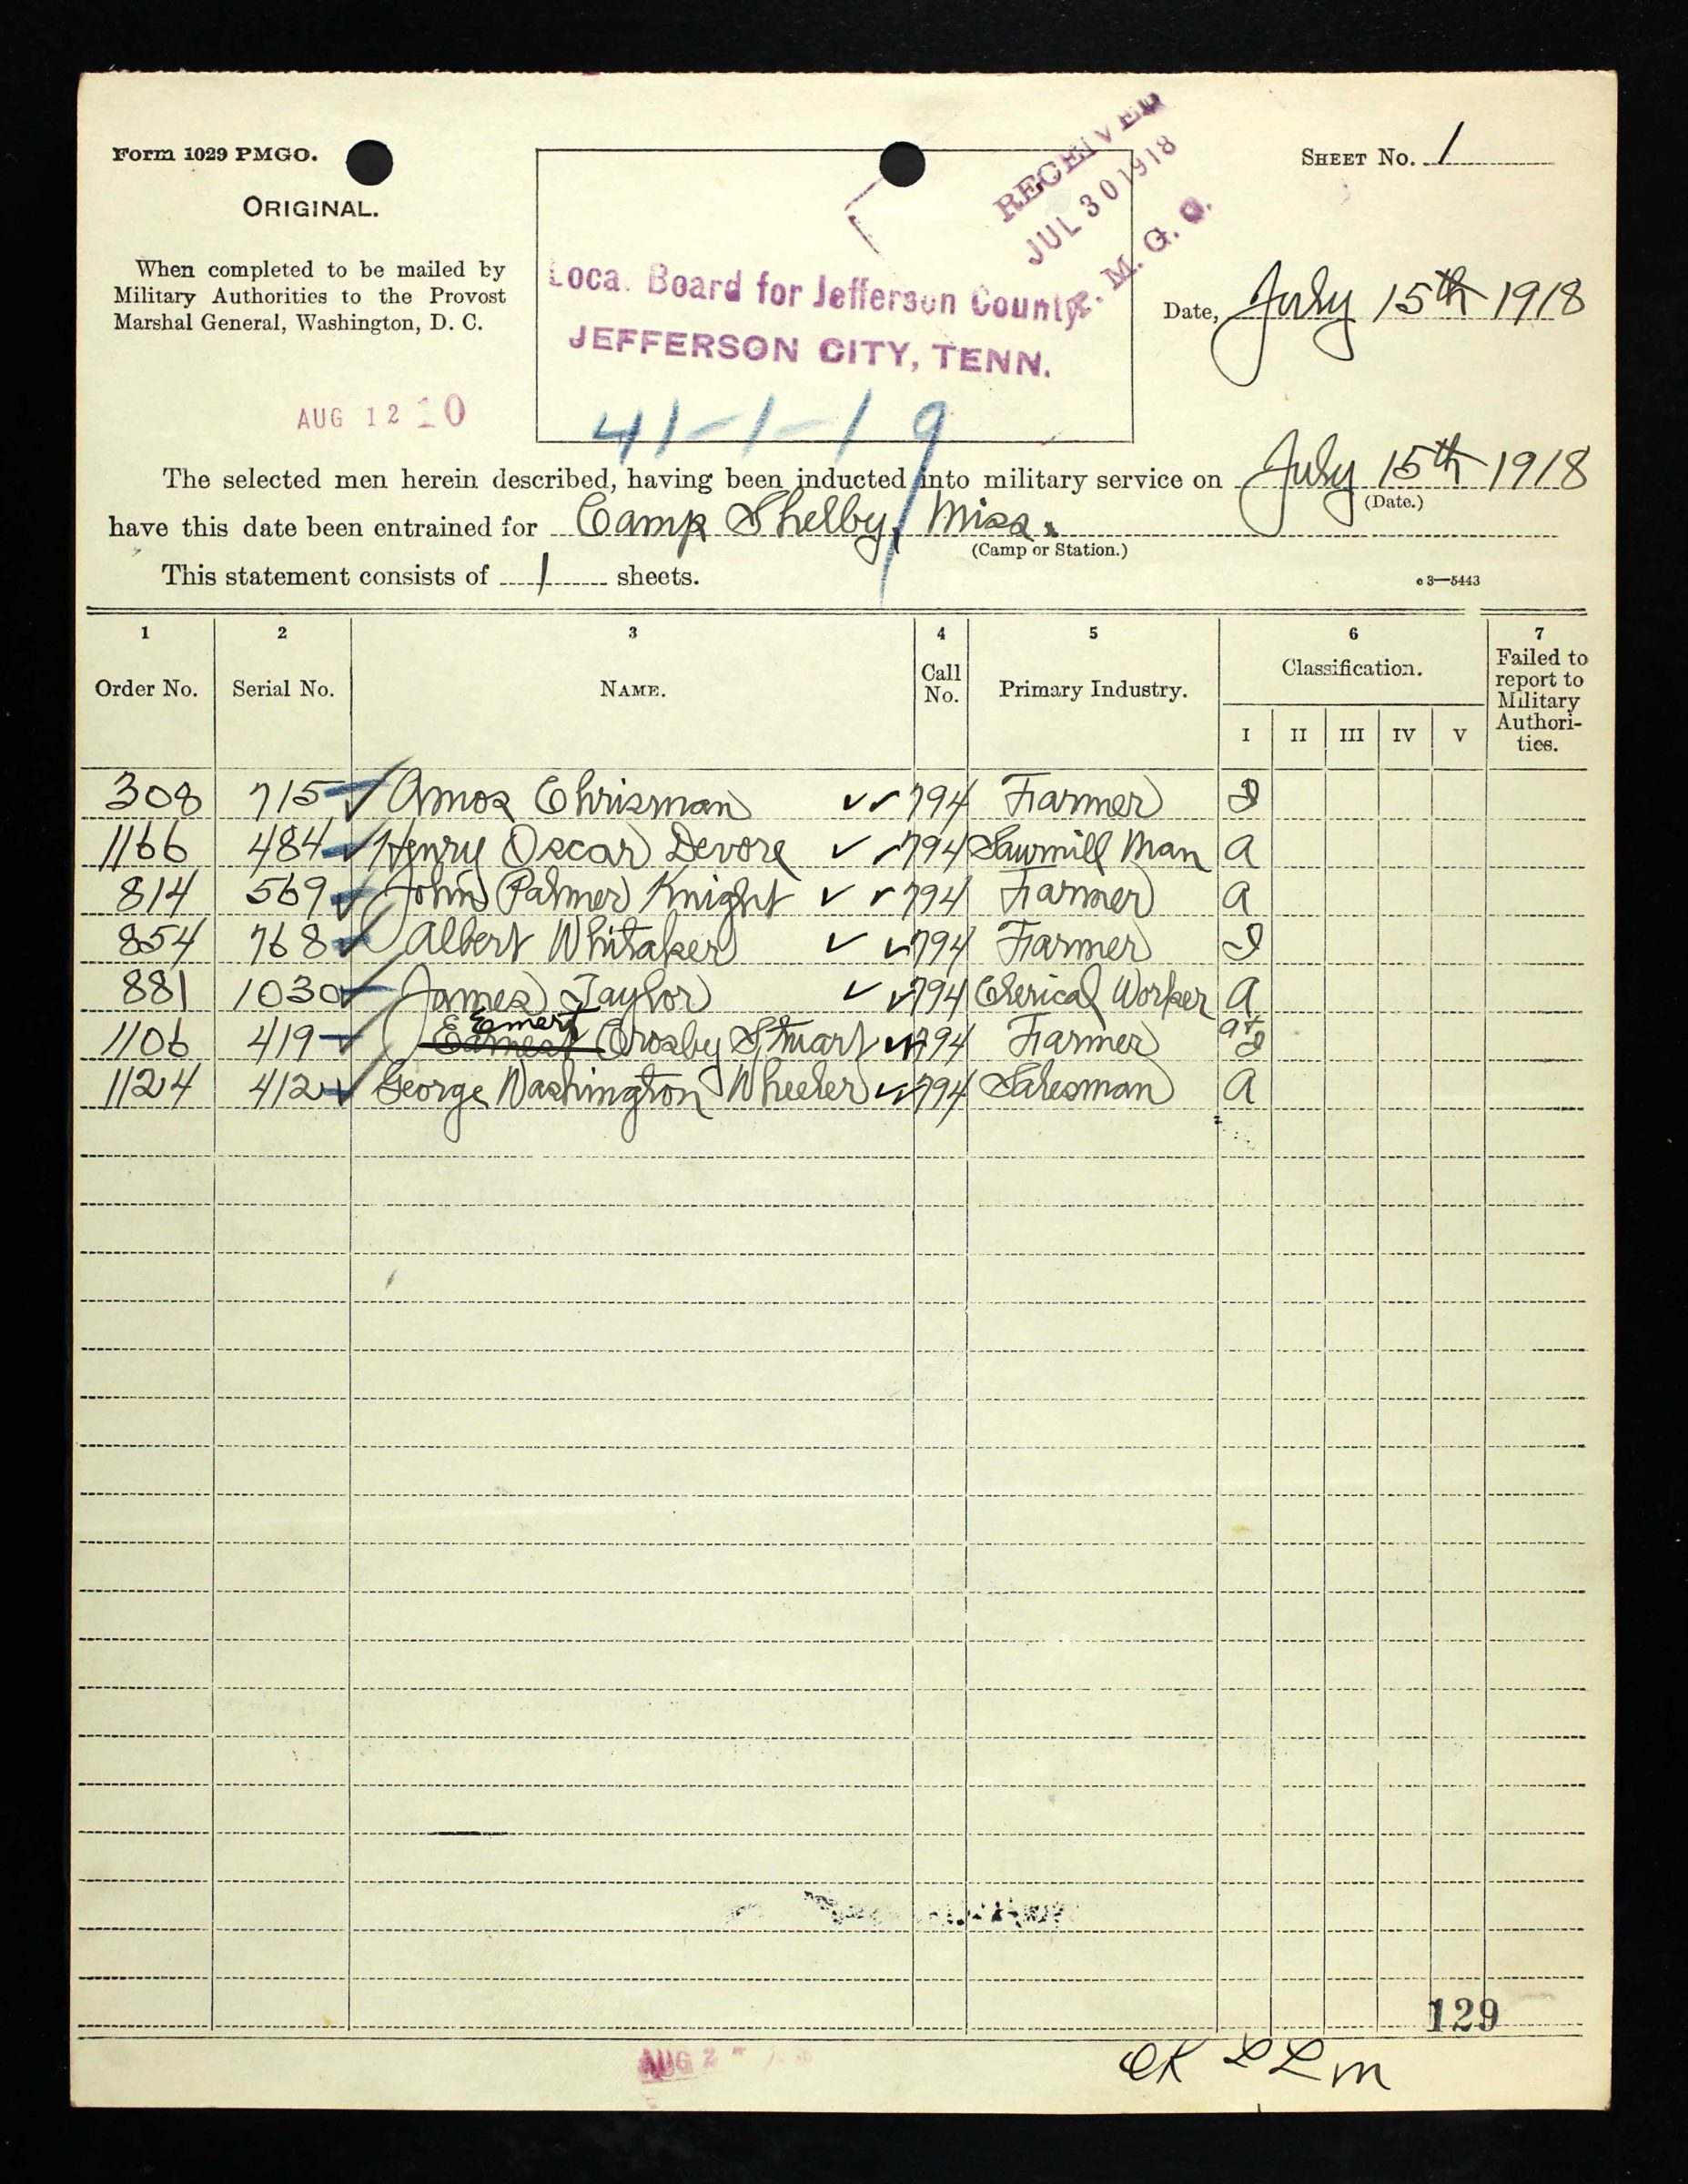 Form 1029 PMGO.
ORIGINAL.
When completed to be mailed by
Military Authorities to the Provost
Marshal General, Washington, D. C.
AUG 12 10
RECEIVED
JUL 30 1918
P. M. G. O.
Local Board for Jefferson County,
JEFFERSON CITY, TENN.
41-1-19
SHEET NO. 1
Date, July 15th 1918
The selected men herein described, having been inducted into military service on July 15th 1918
(Date.)
have this date been entrained for Camp Shelby, Miss.
(Camp or Station.)
This statement consists of 1 sheets.
c3—5443
1 2 3 4 5 6 7
Order No. Serial No. NAME. Call No. Primary Industry. Classification. Failed to report to Military Authorities.
I II III IV V
308 715 Amos Chrisman 794 Farmer I
1166 484 Henry Oscar Devore 794 Sawmill Man A
814 569 John Palmer Knight 794 Farmer A
854 768 Albert Whitaker 794 Farmer I
881 1030 James Taylor 794 Clerical Worker A
1106 419 Earnest Emert Crosby Stuart 794 Farmer A+I
1124 412 George Washington Wheeler 794 Salesman A
129
OK LLM
AUG 2